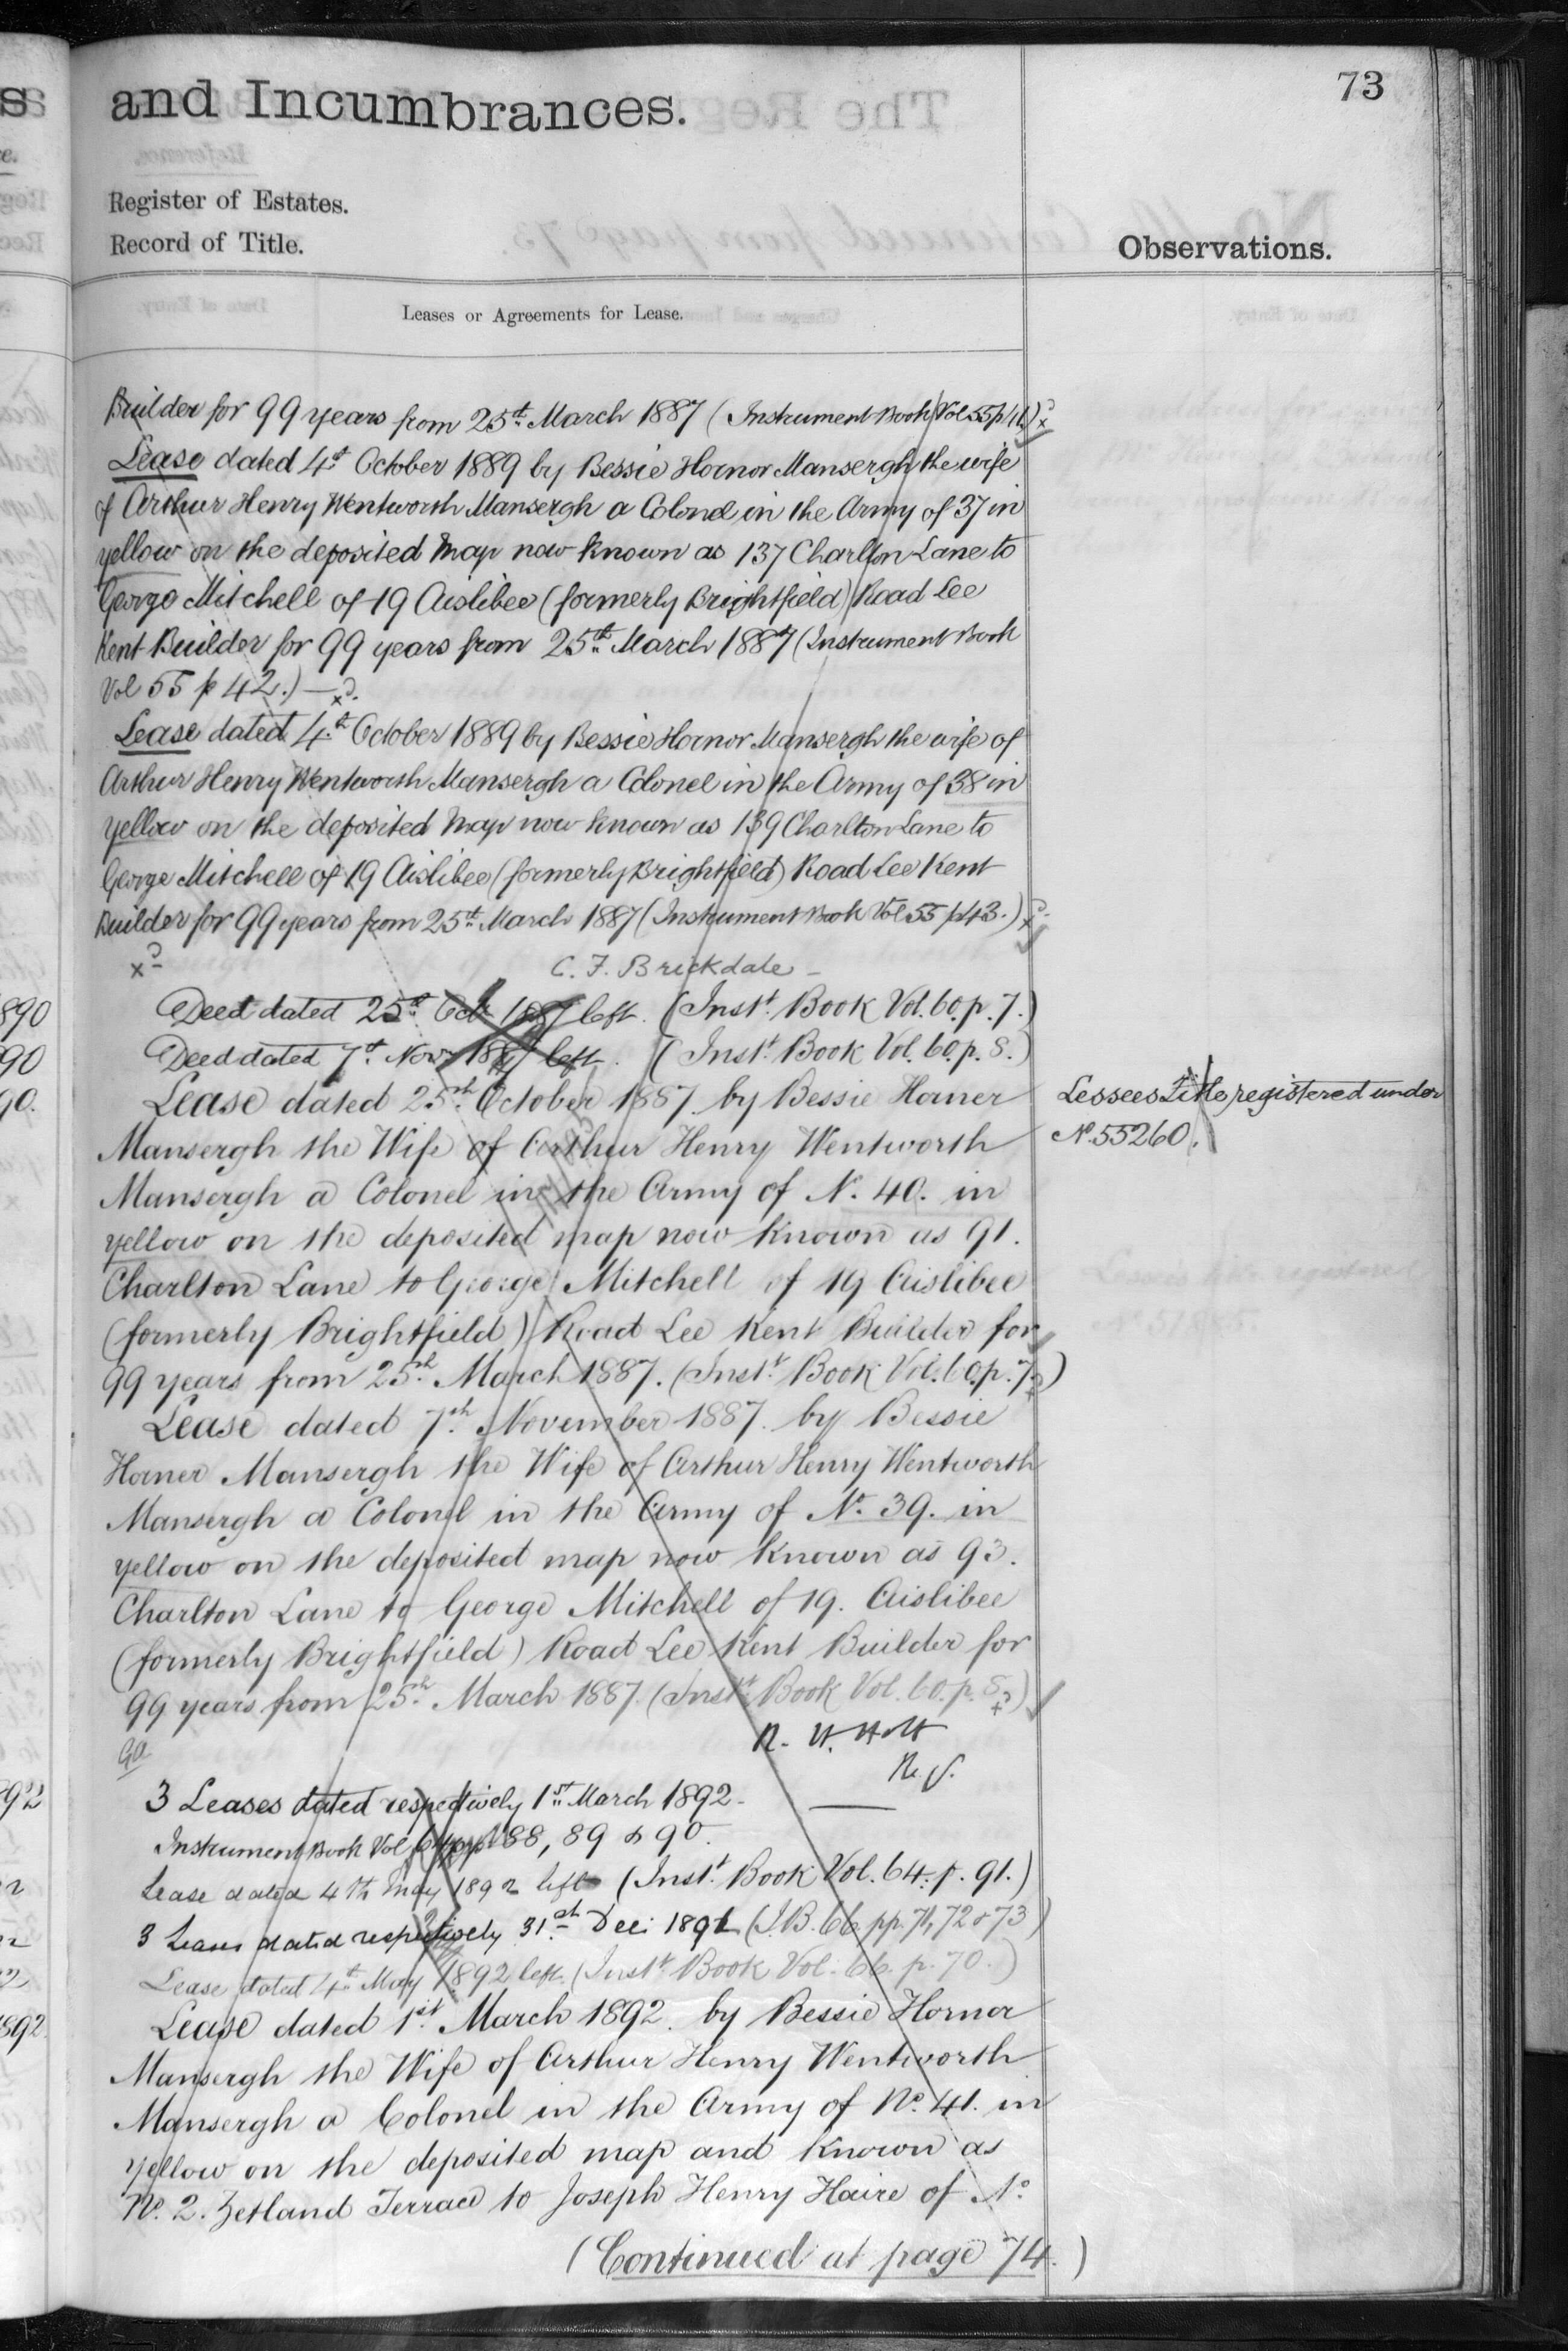 and Incumbrances.
73
Register of Estates.
Record of Title.
Observations.
Leases or Agreements for Lease.
Builder for 99 years from 25th March 1887 (Instrument Book Vol 55 p 41.)
Lease dated 4th October 1889 by Bessie Hornor Mansergh the wife
of Arthur Henry Wentworth Mansergh a Colonel in the Army of 37 in
yellow on the deposited Map now known as 137 Charlton Lane to
George Mitchell of 19 Aislibee (formerly Brightfield) Road Lee
Kent Builder for 99 years from 25th March 1887 (Instrument Book
Vol 55 p 42.)
Lease dated 4th October 1889 by Bessie Hornor Mansergh the wife of
Arthur Henry Wentworth Mansergh a Colonel in the Army of 38 in
yellow on the deposited Map now known as 139 Charlton Lane to
George Mitchell of 19 Aislibee (formerly Brightfield) Road Lee Kent
Builder for 99 years from 25th March 1887 (Instrument Book Vol 55 p 43.)
C. F. Brickdale
890
Deed dated 25th Oct 1887 left. (Instt. Book Vol. 60. p. 7.)
90
Deed dated 7th Nov 1887 left. (Instt. Book Vol. 60. p. 8.)
90.
Lease dated 25th October 1887 by Bessie Horner
Lessees Title registered under
Mansergh the Wife of Arthur Henry Wentworth
No. 55260.
Mansergh a Colonel in the Army of No. 40. in
yellow on the deposited map now known as 91.
Charlton Lane to George Mitchell of 19 Aislibee
(formerly Brightfield) Road Lee Kent Builder for
99 years from 25th March 1887. (Instt. Book Vol. 60. p. 7.)
Lease dated 7th November 1887 by Bessie
Horner Mansergh the Wife of Arthur Henry Wentworth
Mansergh a Colonel in the Army of No. 39. in
yellow on the deposited map now known as 93.
Charlton Lane to George Mitchell of 19. Aislibee
(formerly Brightfield) Road Lee Kent Builder for
99 years from 25th March 1887. (Instt. Book Vol. 60. p. 8.)
R. H. Holt
892
3 Leases dated respectively 1st March 1892.
Instrument Book Vol 64 pp 88, 89 & 90.
Lease dated 4th May 1892 left (Instt. Book Vol. 64. p. 91.)
3 Leases dated respectively 31st Dec: 1891 (I.B. 66 pp. 71, 72 & 73)
Lease dated 4th May 1892 left. (Instt. Book Vol. 66. p. 70.)
892
Lease dated 1st March 1892 by Bessie Hornor
Mansergh the Wife of Arthur Henry Wentworth
Mansergh a Colonel in the Army of No. 41. in
yellow on the deposited map and known as
No. 2. Zetland Terrace to Joseph Henry Haire of No.
(Continued at page 74.)